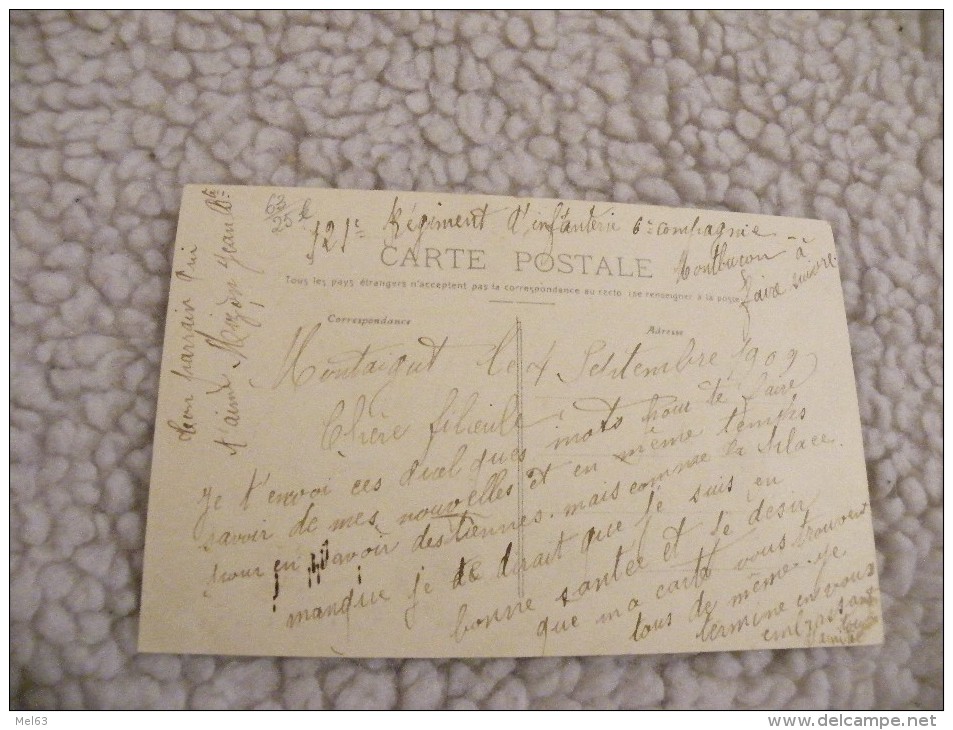 63
25 €
121e Régiment d'infanterie 6e compagnie
Montluçon à
faire suivre
CARTE POSTALE
Tous les pays étrangers n'acceptent pas la correspondance au recto (se renseigner à la poste)
Correspondance
Adresse
Montaigut le 4 Septembre 1909
Chère filieule
Je t'envoi ces quelques mots pour te faire
savoir de mes nouvelles et en même temps
pour en avoir des tiennes. mais comme la place
manque je te dirait que je suis en
bonne santée et je désir
que ma carte vous trouvent
tous de même. Je
termine en vous
embrassant
tous
ton parrain qui
t'aime
Jean
Mel63